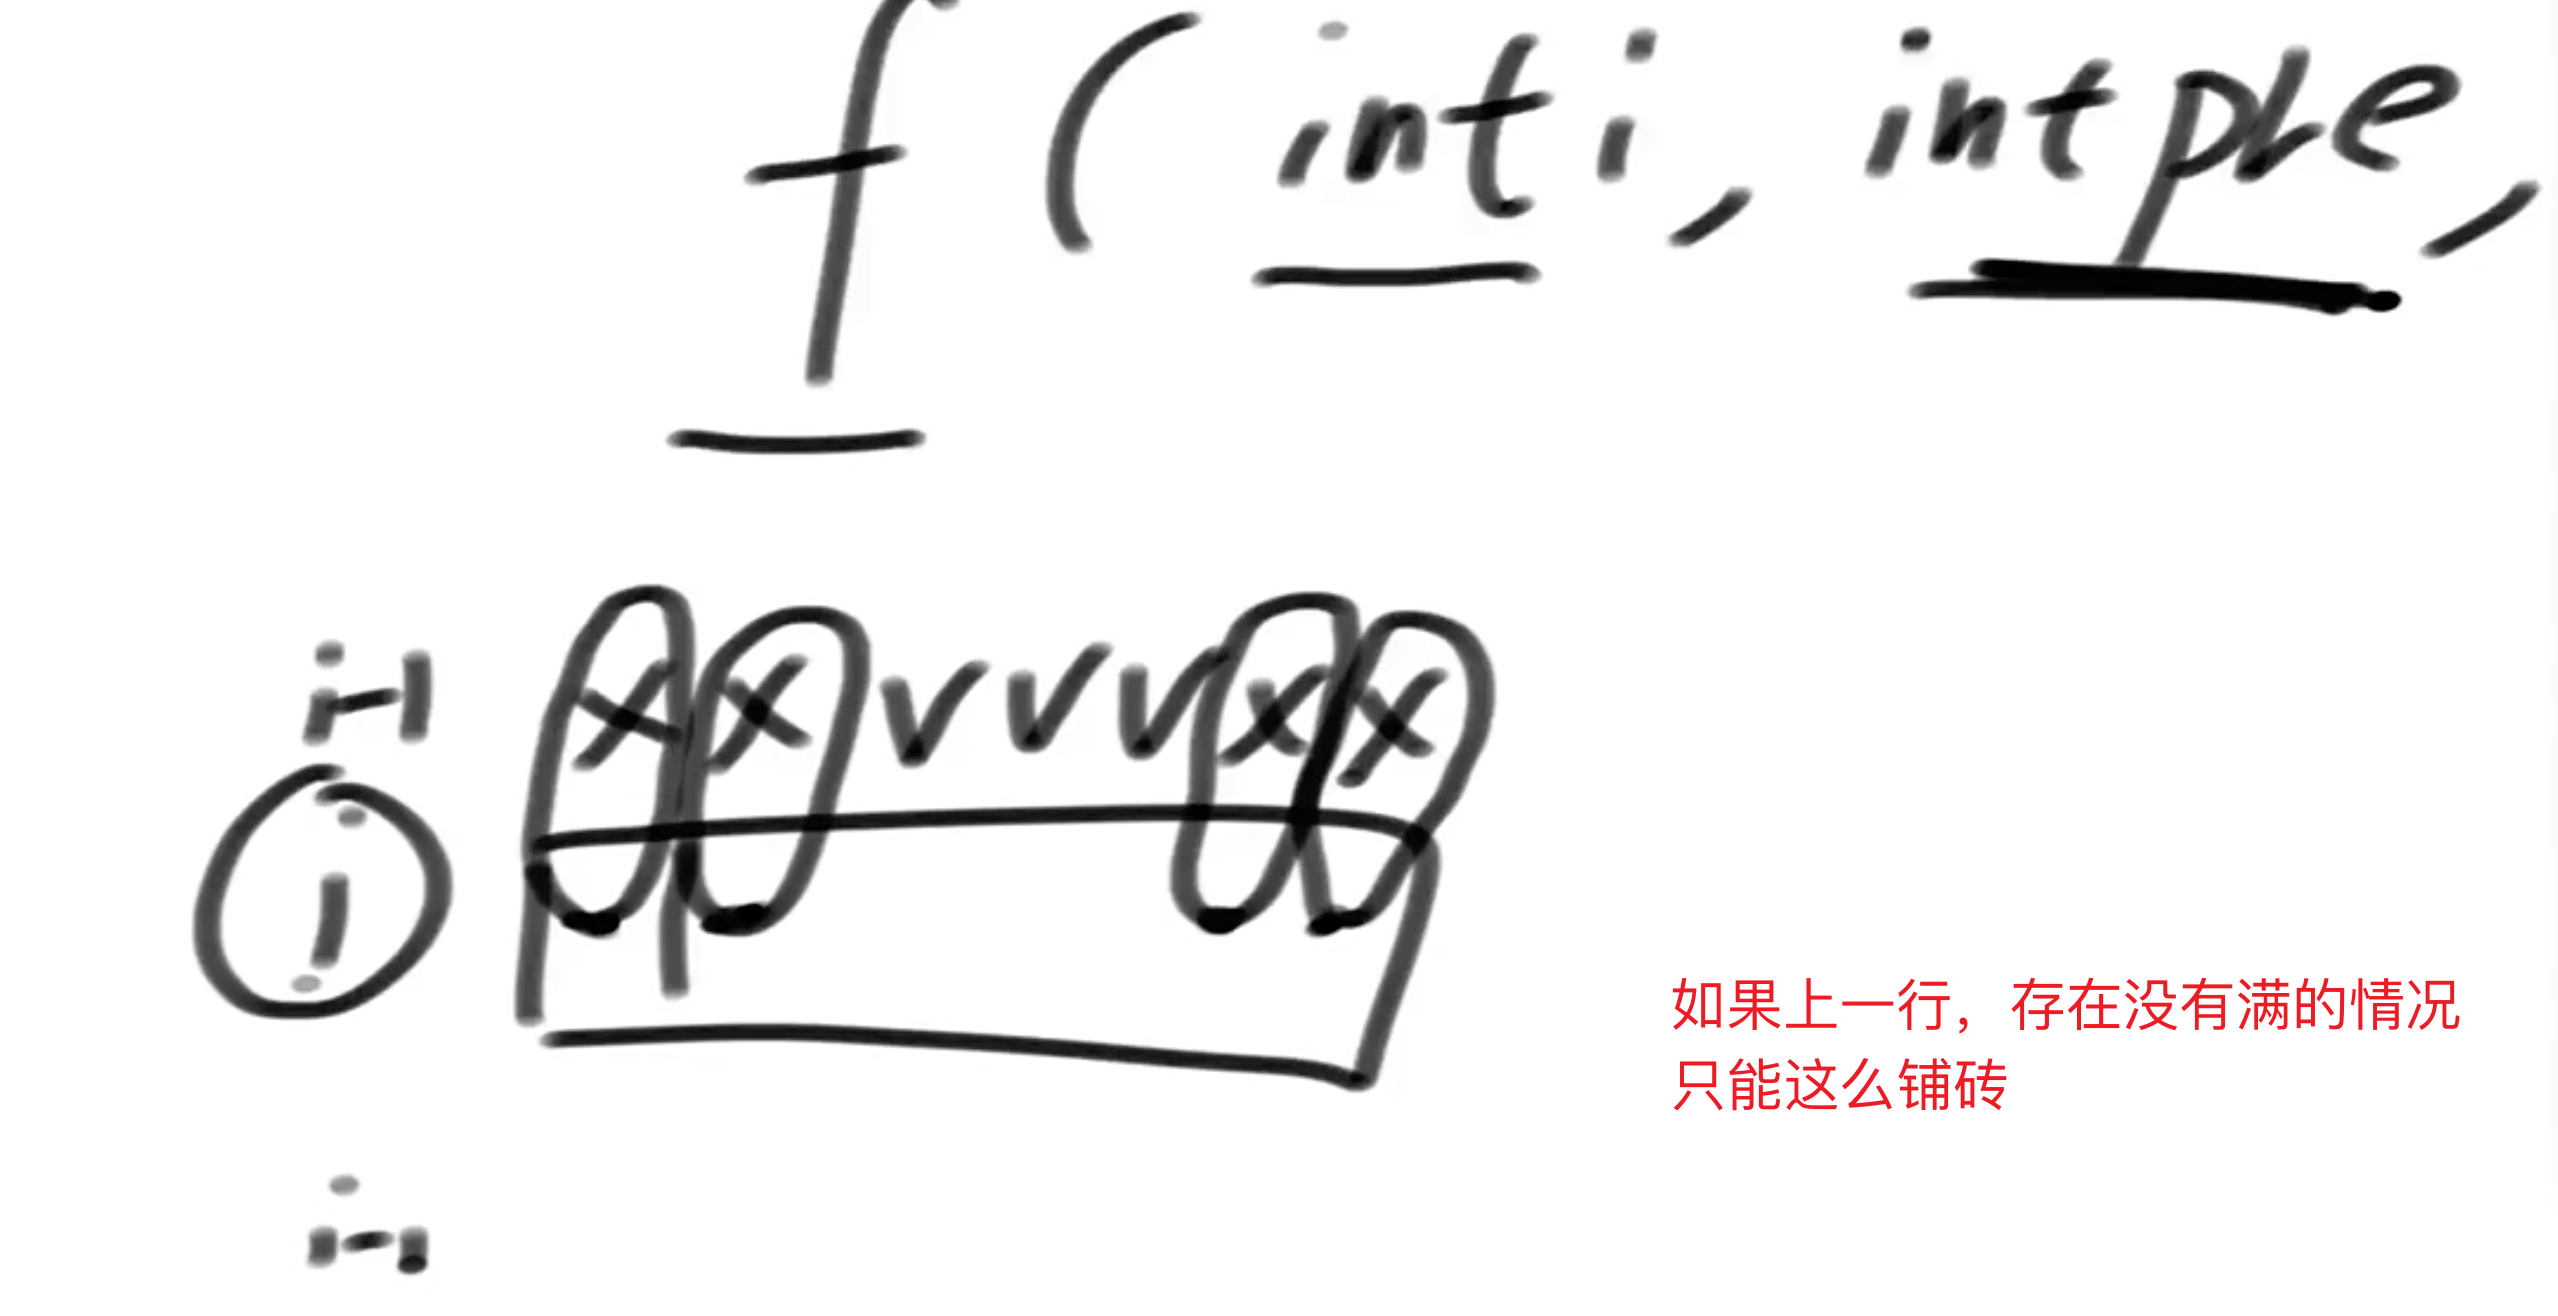 f ( int i, int pre,
i-1 x x v v v x x
i
i-1
如果上一行，存在没有满的情况
只能这么铺砖